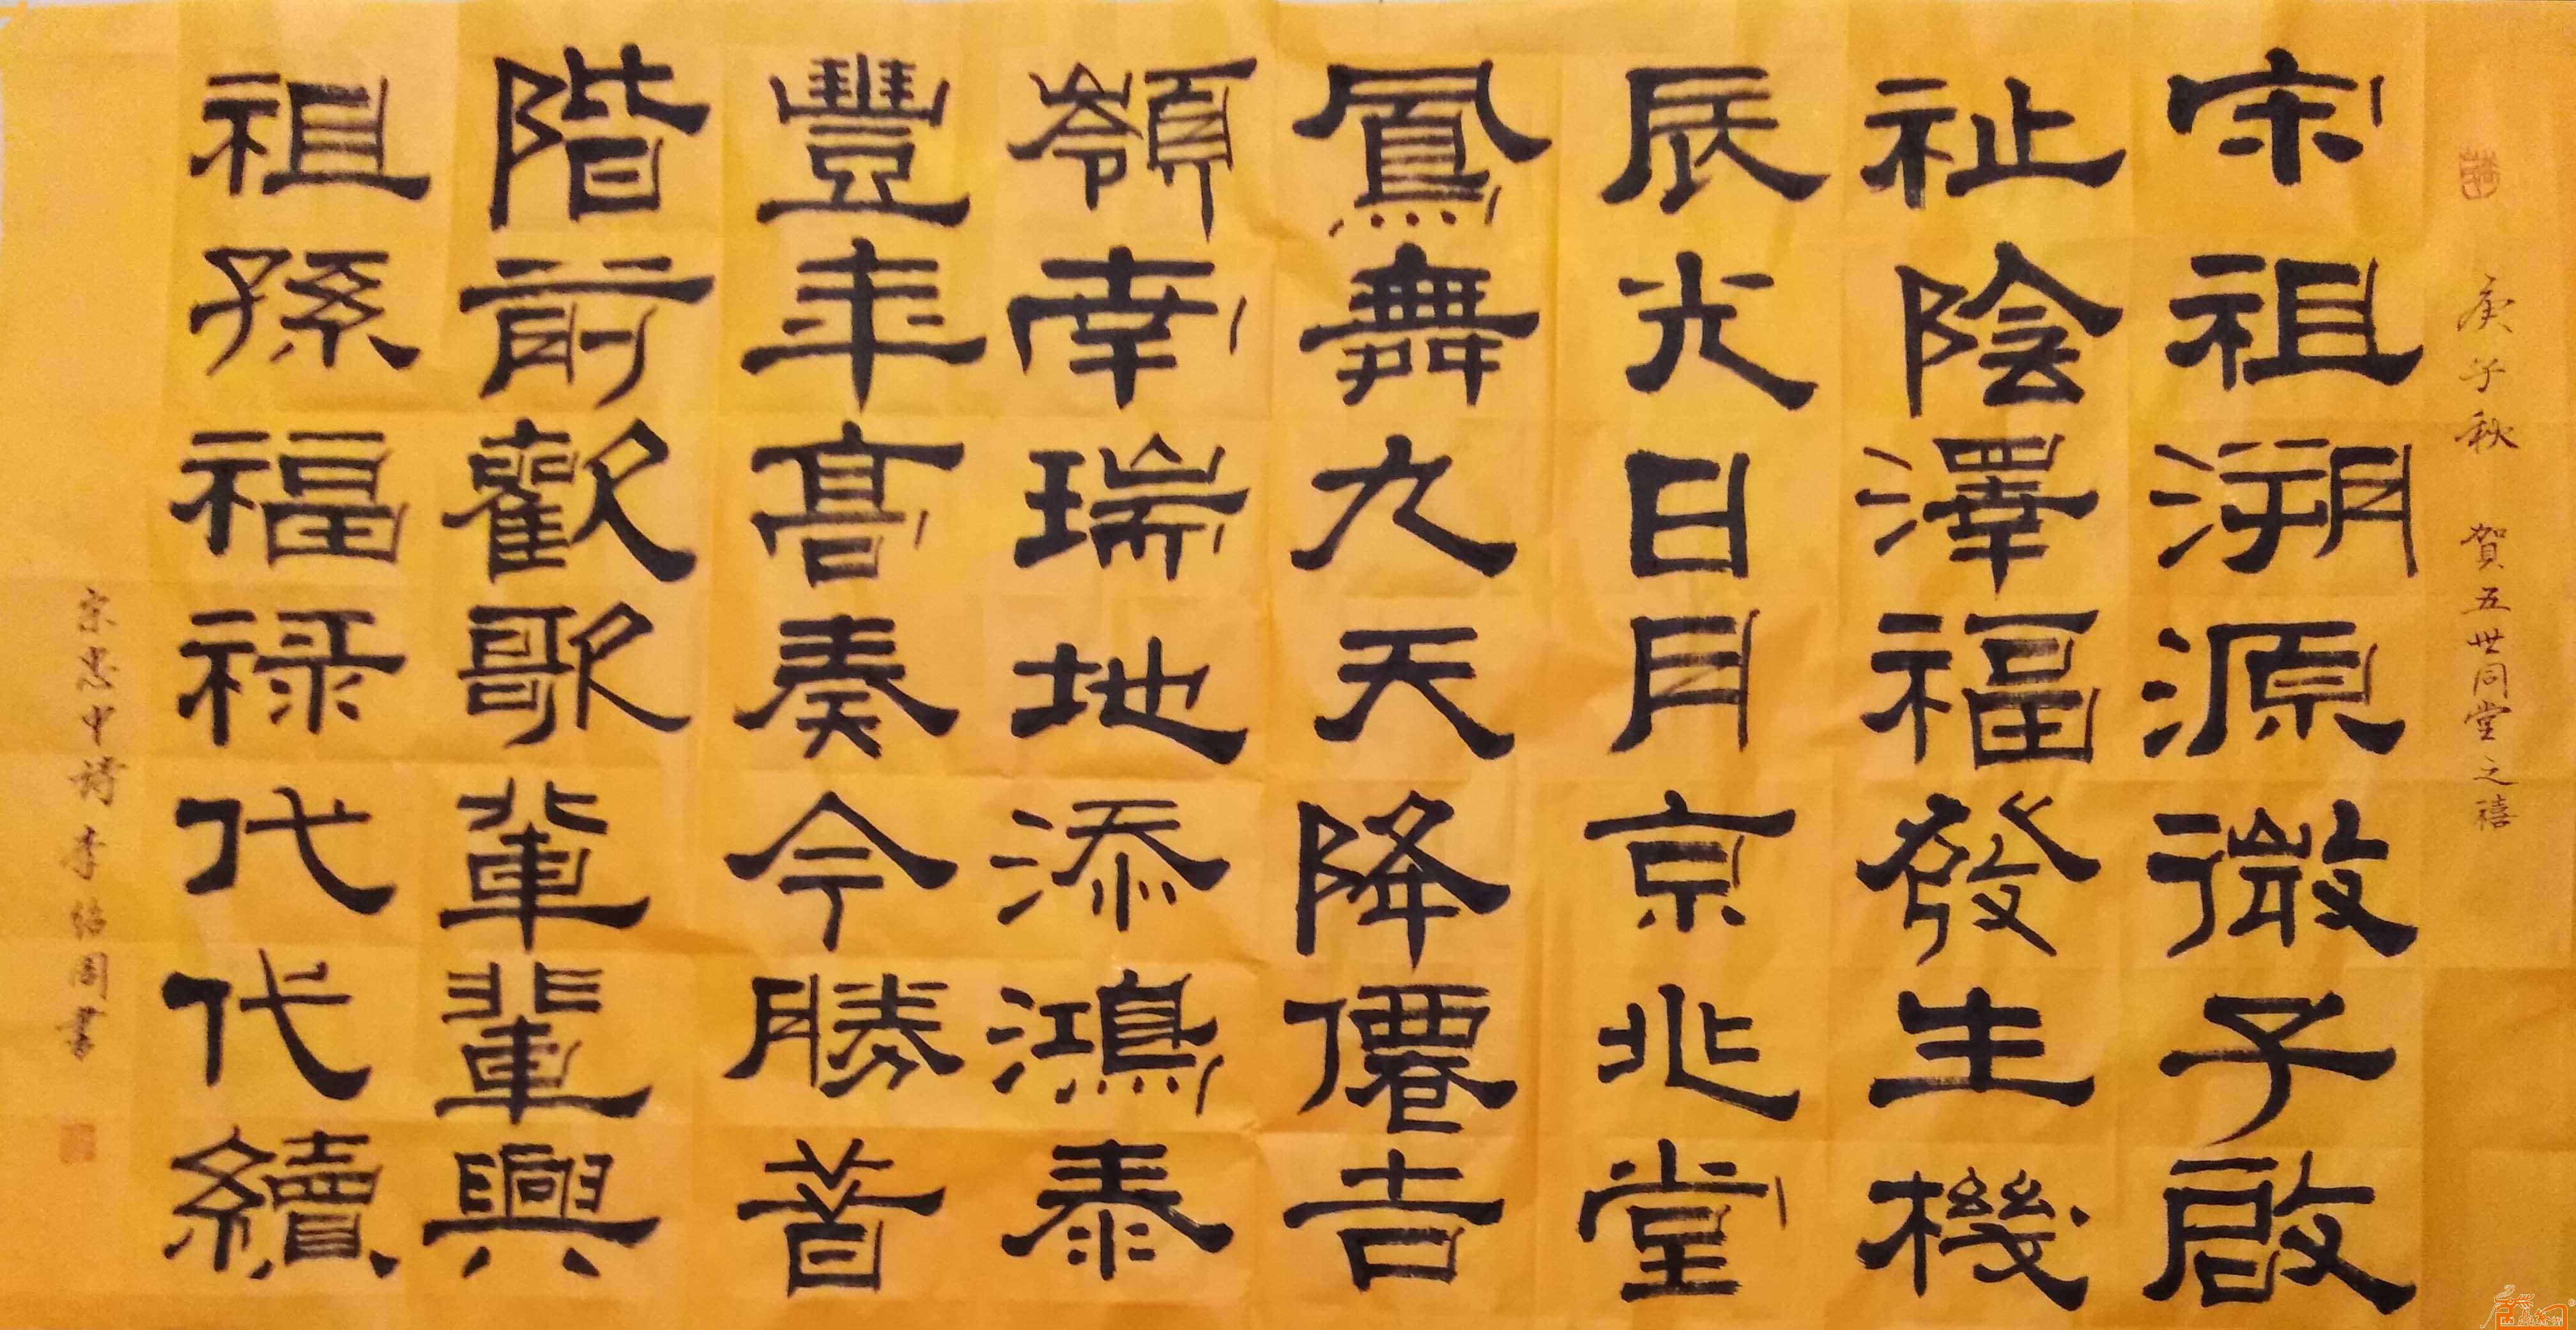 庚子秋 賀五世同堂之禧
宗祖溯源微子啟
祉陰澤福發生機
辰光日月京兆堂
鳳舞九天降僊吉
嶺南瑞地添鴻泰
豐年高奏今勝昔
階前歡歌輩輩興
祖孫福禄代代續
宗忠中詩 李绍周書